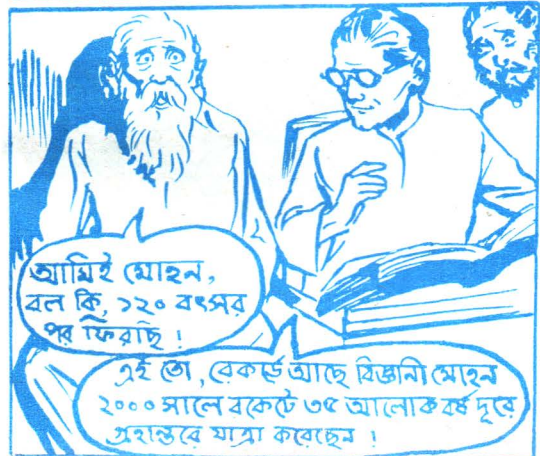 আমিই মোহন,
বল কি, ১২০ বৎসর
পর ফিরছি !
এই তো, রেকর্ডে আছে বিজ্ঞানী মোহন
২০০০ সালে রকেটে ৩৫ আলোক বর্ষ দূরে
গ্রহান্তরে যাত্রা করেছেন !